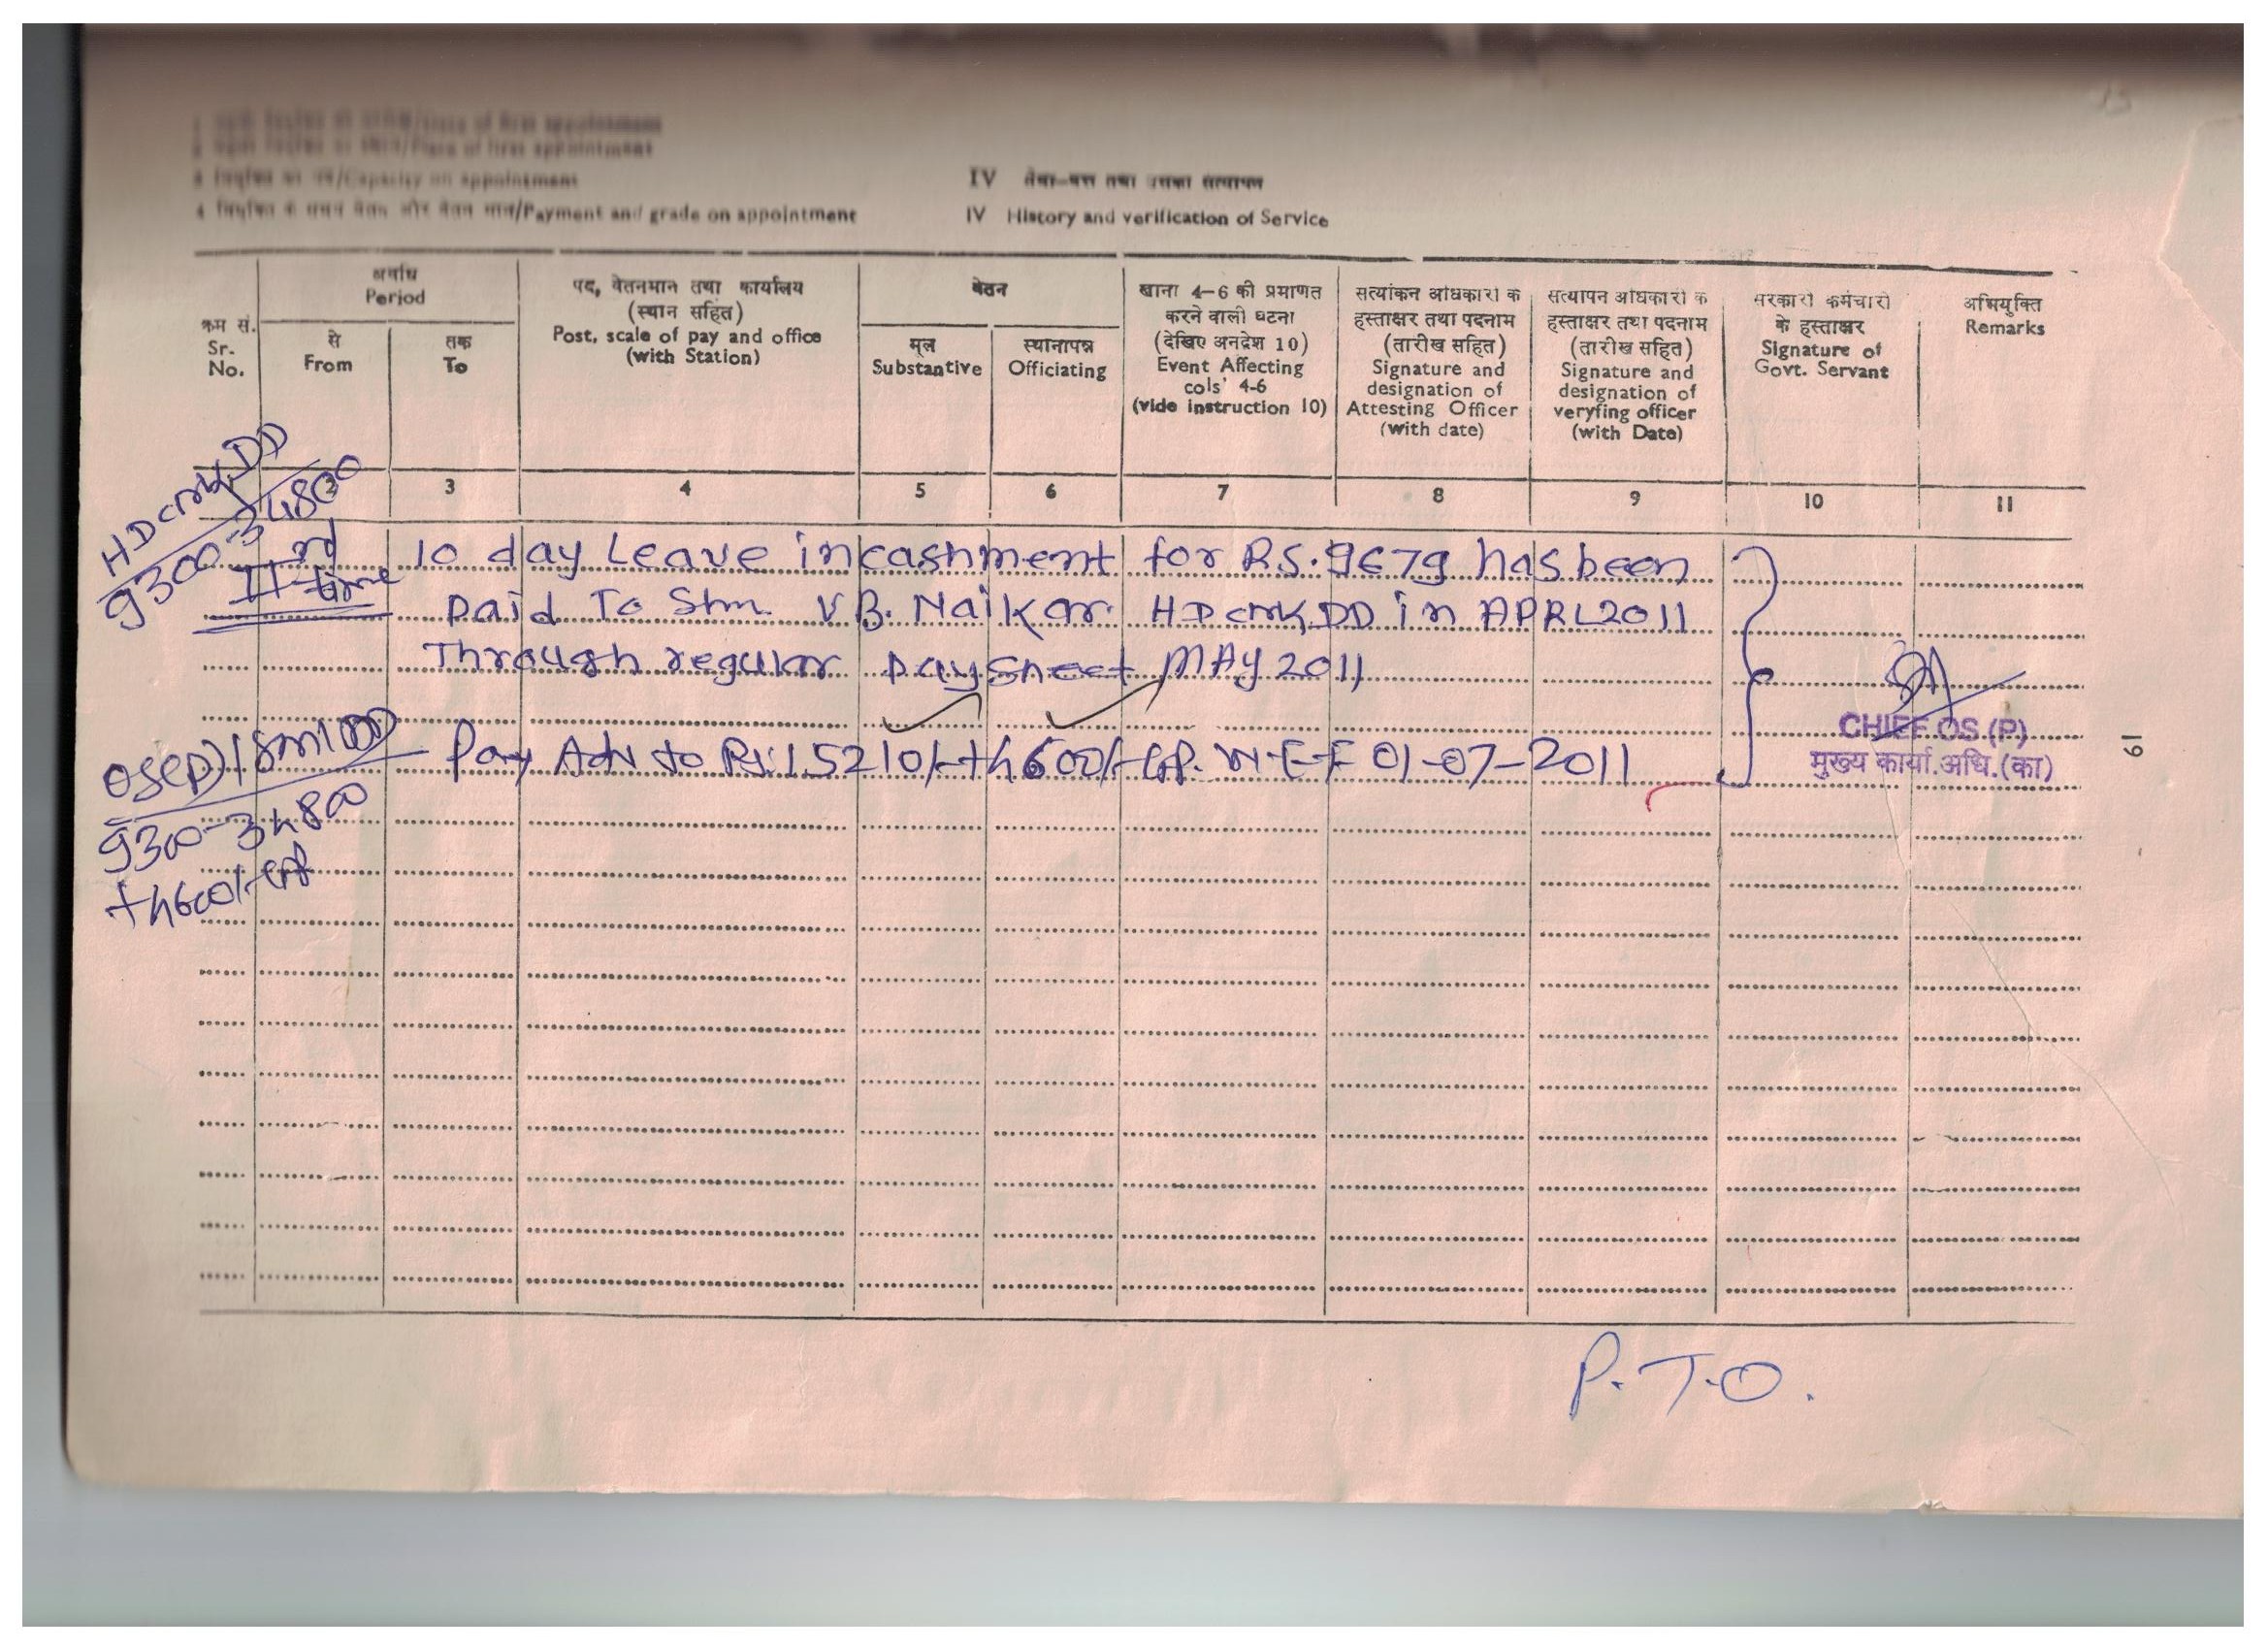 /Place of first appointment
/Capacity on appointment
IV सेवा-वृत्त तथा उसका सत्यापन
4 नियुक्ति के समय वेतन और वेतन मान/Payment and grade on appointment
IV History and verification of Service
क्रम सं.
Sr.
No.
अवधि
Period
से
From
तक
To
पद, वेतनमान तथा कार्यालय
(स्थान सहित)
Post, scale of pay and office
(with Station)
वेतन
मूल
Substantive
स्थानापन्न
Officiating
खाना 4-6 की प्रमाणत
करने वाली घटना
(देखिए अनदेश 10)
Event Affecting
cols' 4-6
(vide instruction 10)
सत्यांकन अधिकारी क
हस्ताक्षर तथा पदनाम
(तारीख सहित)
Signature and
designation of
Attesting Officer
(with date)
सत्यापन अधिकारी क
हस्ताक्षर तथा पदनाम
(तारीख सहित)
Signature and
designation of
veryfing officer
(with Date)
सरकारी कर्मचारी
के हस्ताक्षर
Signature of
Govt. Servant
अभियुक्ति
Remarks
2 3 4 5 6 7 8 9 10 11
HD cmk DD
9300-34800
IInd time
10 day Leave incashment for RS. 9679 has been
paid To Shri. V B. Naikar. HD cmk DD in APRL 2011
Through regular pay sheet MAY 2011
CHIEF OS (P)
मुख्य कार्या.अधि.(का)
OS(P)
9300-34800
+4600/-GP
Pay Adv to Rs. 15210/-+4600/-GP. W-E-F 01-07-2011
61
P.T.O.